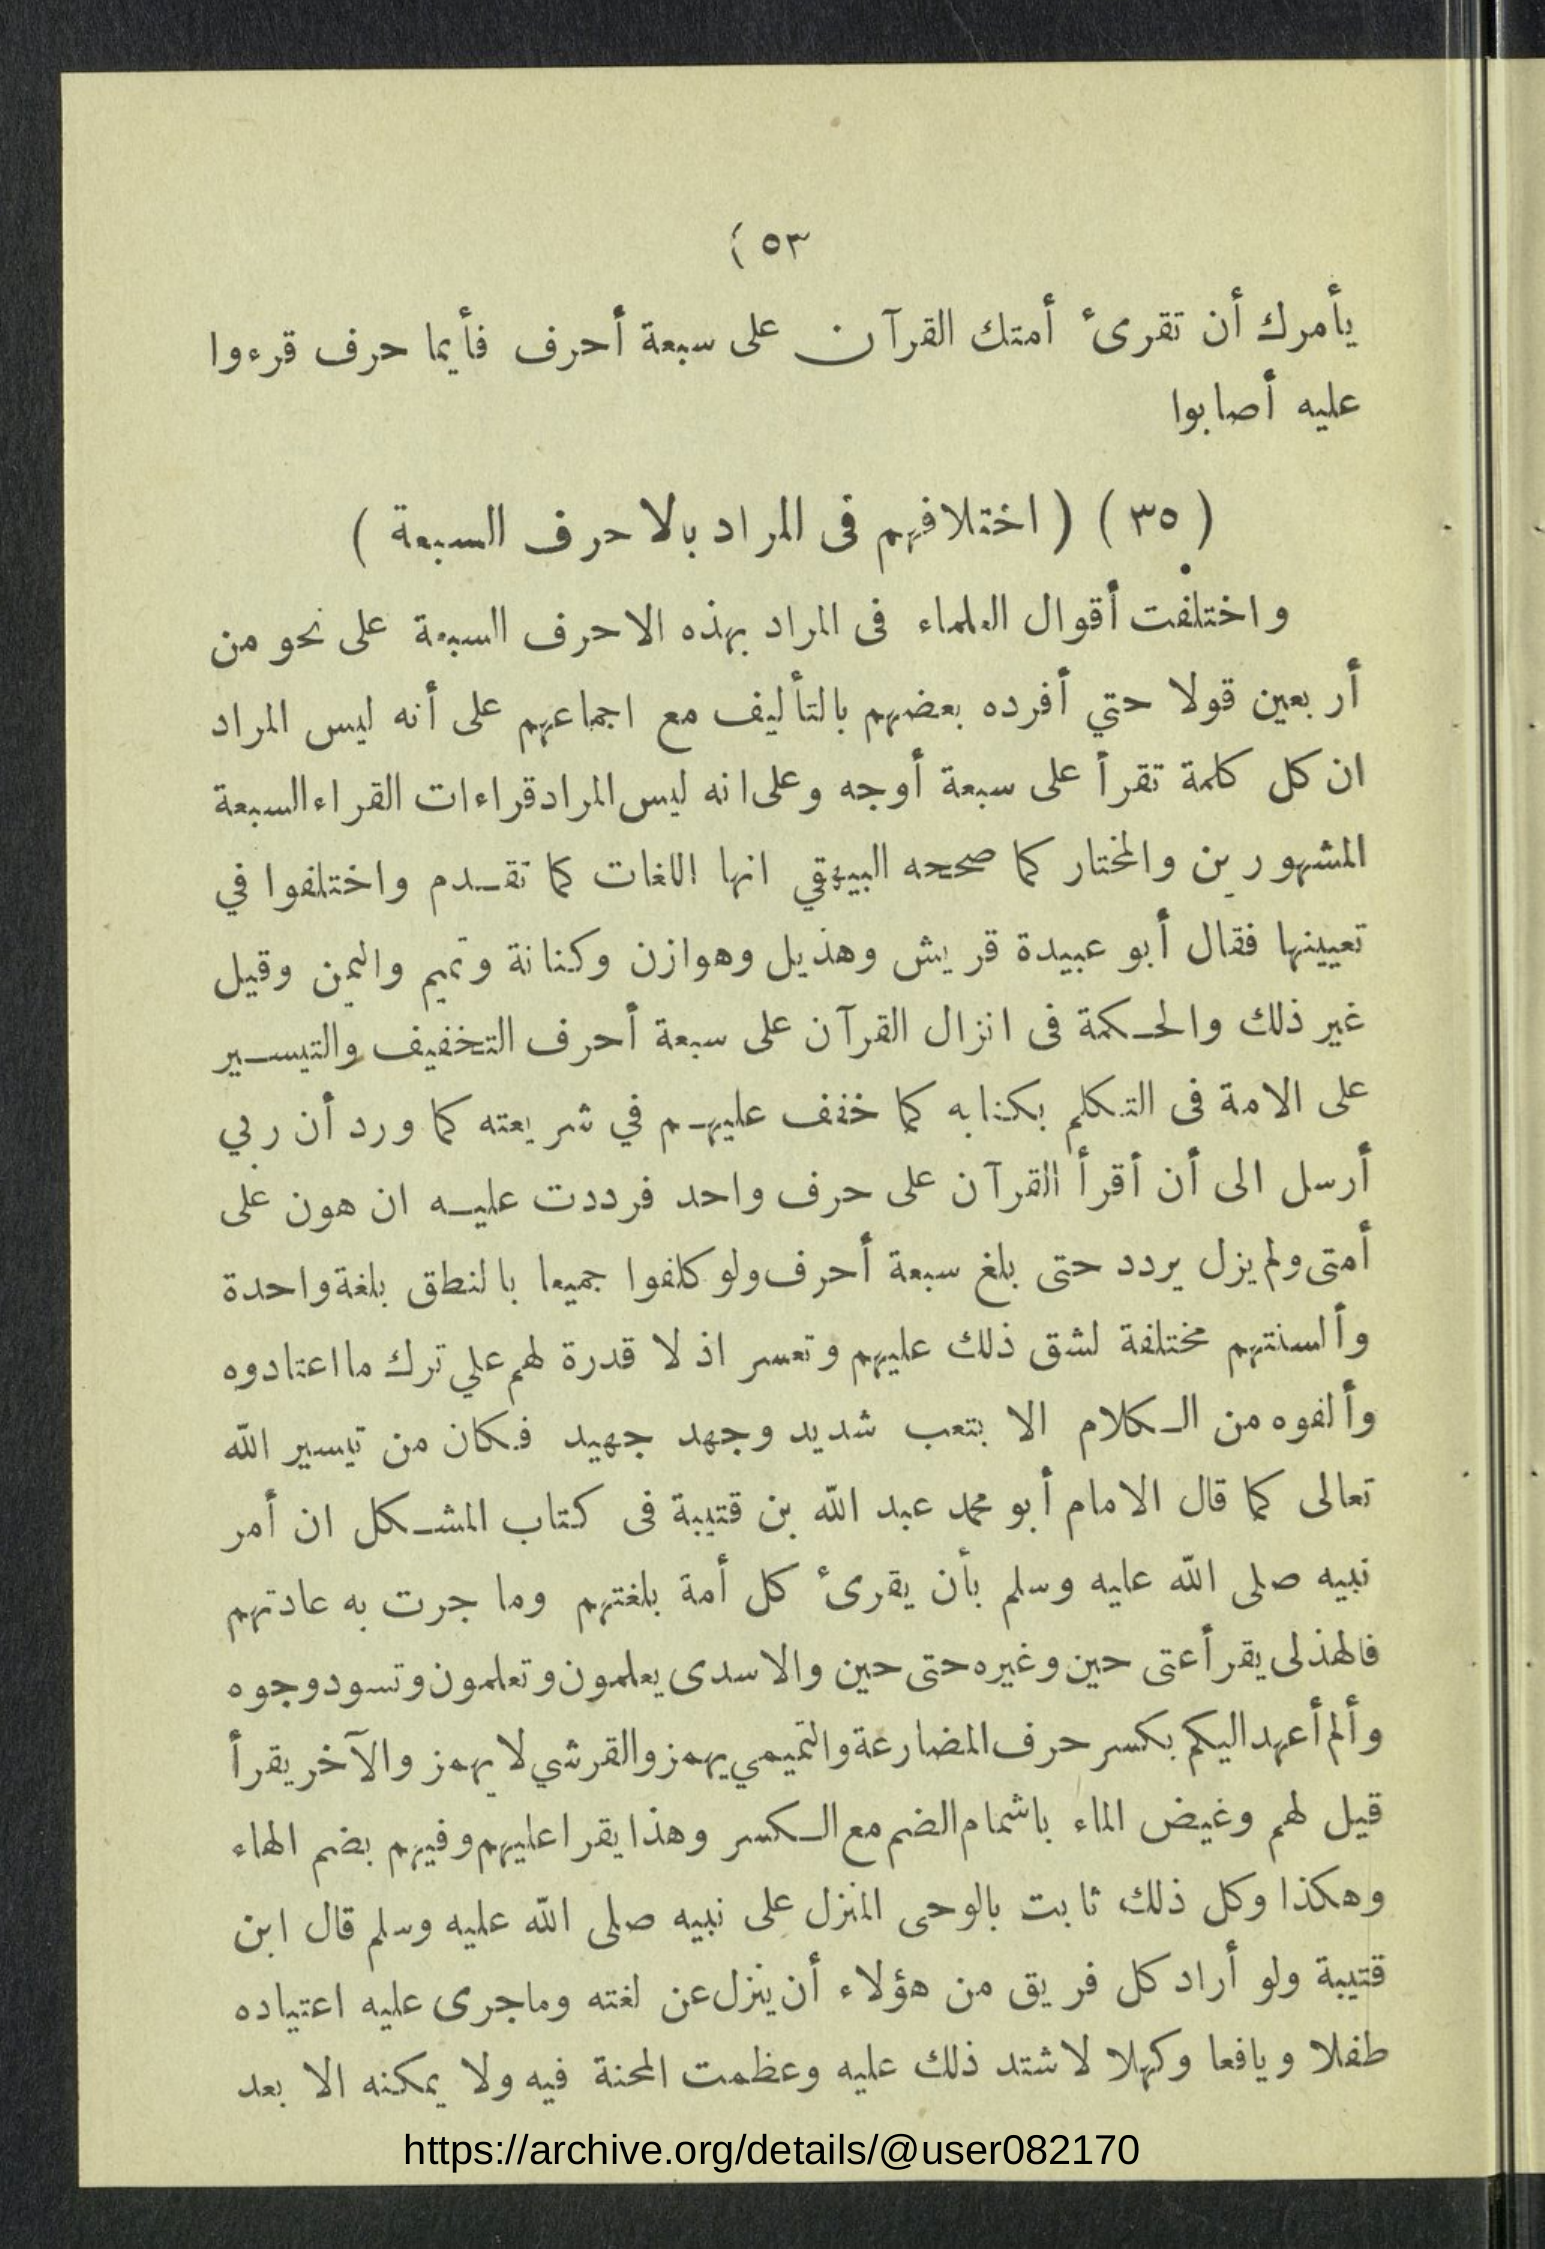 ٥٣ )
يأمرك أن تقرئ أمتك القرآن على سبعة أحرف فأيما حرف قرءوا
عليه أصابوا
( ٣٥ ) ( اختلافهم فى المراد بالاحرف السبعة )
واختلفت أقوال العلماء فى المراد بهذه الاحرف السبعة على نحو من
أربعين قولا حتي أفرده بعضهم بالتأليف مع اجماعهم على أنه ليس المراد
ان كل كلمة تقرأ على سبعة أوجه وعلى انه ليس المراد قراءات القراء السبعة
المشهورين والمختار كما صححه البيهقي انها اللغات كما تقدم واختلفوا في
تعيينها فقال أبو عبيدة قريش وهذيل وهوازن وكنانة وتميم واليمن وقيل
غير ذلك والحكمة فى انزال القرآن على سبعة أحرف التخفيف والتيسير
على الامة فى التكلم بكتابه كما خفف عليهم في شريعته كما ورد أن ربي
أرسل الى أن أقرأ القرآن على حرف واحد فرددت عليه ان هون على
أمتى ولم يزل يردد حتى بلغ سبعة أحرف ولو كلفوا جميعا بالنطق بلغة واحدة
وألسنتهم مختلفة لشق ذلك عليهم وتعسر اذ لا قدرة لهم علي ترك ما اعتادوه
وألفوه من الكلام الا بتعب شديد وجهد جهيد فكان من تيسير الله
تعالى كما قال الامام أبو محمد عبد الله بن قتيبة فى كتاب المشكل ان أمر
نبيه صلى الله عليه وسلم بأن يقرئ كل أمة بلغتهم وما جرت به عادتهم
فالهذلى يقرأ عتى حين وغيره حتى حين والاسدى يعلمون وتعلمون وتسود وجوه
وألم أعهد اليكم بكسر حرف المضارعة والتميمي يهمز والقرشي لا يهمز والآخر يقرأ
قيل لهم وغيض الماء باشمام الضم مع الكسر وهذا يقرا عليهم وفيهم بضم الهاء
وهكذا وكل ذلك ثابت بالوحى المنزل على نبيه صلى الله عليه وسلم قال ابن
قتيبة ولو أراد كل فريق من هؤلاء أن ينزل عن لغته وما جرى عليه اعتياده
طفلا ويافعا وكهلا لاشتد ذلك عليه وعظمت المحنة فيه ولا يمكنه الا بعد
https://archive.org/details/@user082170